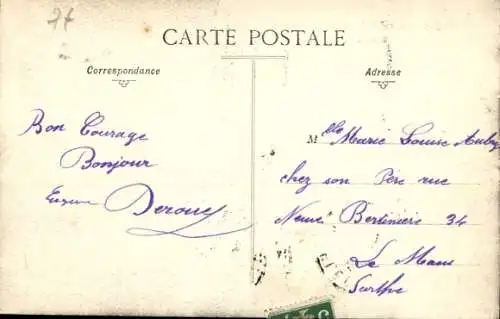 77
CARTE POSTALE
Correspondance
Adresse
Bon Courage
Bonjour
Eugène Derouet
Melle Marie Louise Aubry
chez son Père rue
Neuve Bertinière 34
Le Mans
Sarthe
5